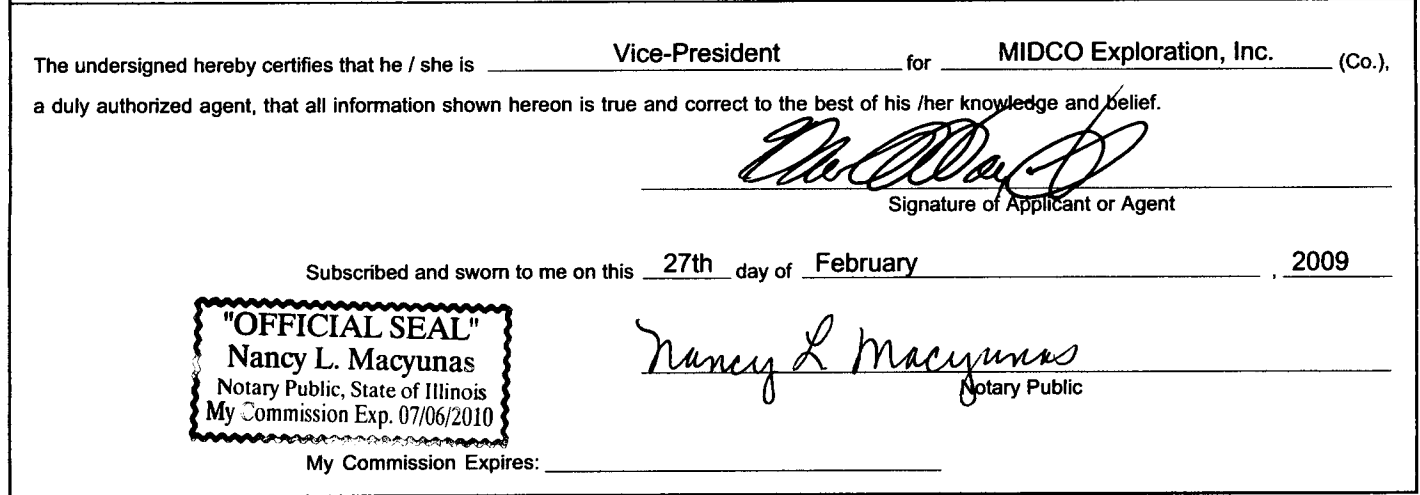 The undersigned hereby certifies that he / she is Vice-President for MIDCO Exploration, Inc. (Co.),
a duly authorized agent, that all information shown hereon is true and correct to the best of his /her knowledge and belief.
Signature of Applicant or Agent
Subscribed and sworn to me on this 27th day of February , 2009
"OFFICIAL SEAL"
Nancy L. Macyunas
Notary Public, State of Illinois
My Commission Exp. 07/06/2010
Nancy L Macyunas
Notary Public
My Commission Expires: